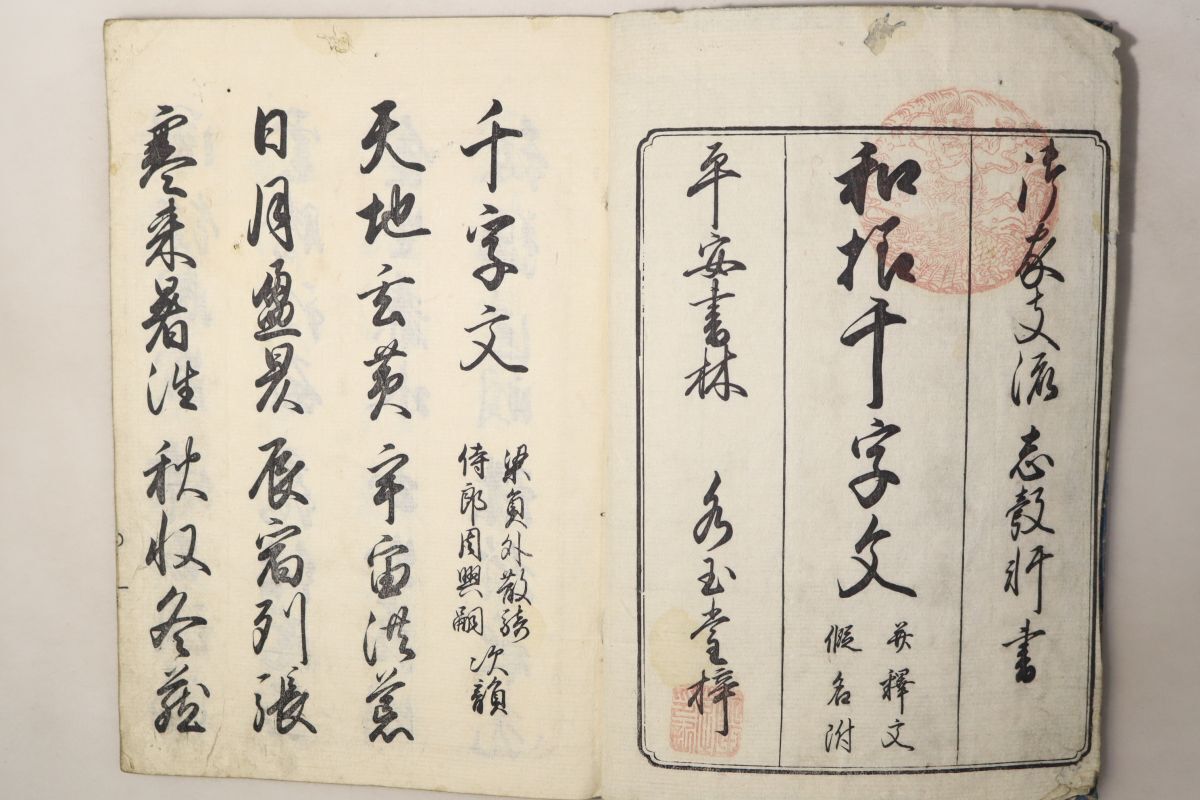 御家支流 書
和様千字文
并釋文
假名附
平安書林 水玉堂梓
千字文
梁員外散騎
侍郎周興嗣
次韻
天地玄黄 宇宙洪荒
日月盈昃 辰宿列張
寒来暑往 秋収冬蔵